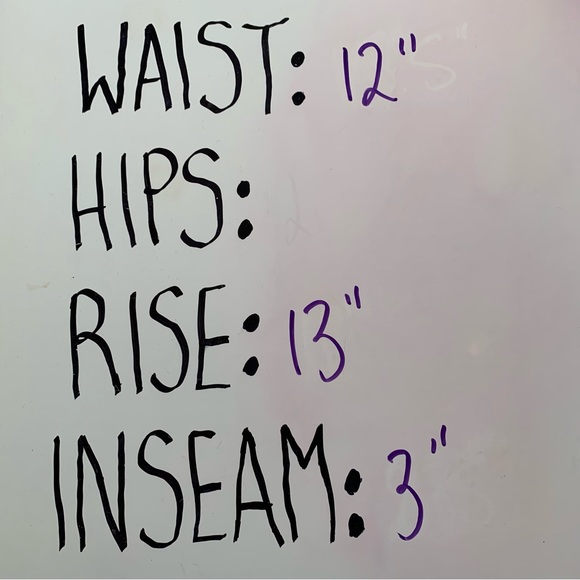 WAIST: 12"
HIPS:
RISE: 13"
INSEAM: 3"